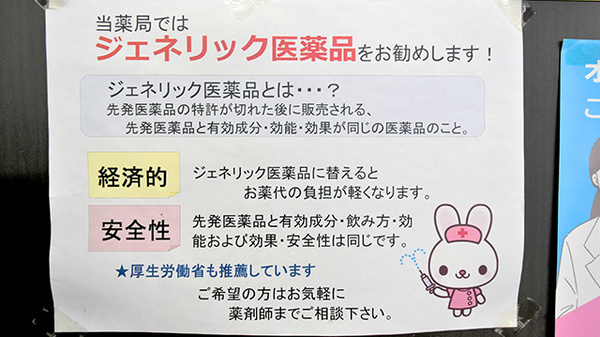 当薬局では
ジェネリック医薬品をお勧めします！
ジェネリック医薬品とは・・・？
先発医薬品の特許が切れた後に販売される、
先発医薬品と有効成分・効能・効果が同じの医薬品のこと。
経済的
ジェネリック医薬品に替えると
お薬代の負担が軽くなります。
安全性
先発医薬品と有効成分・飲み方・効
能および効果・安全性は同じです。
★厚生労働省も推薦しています
ご希望の方はお気軽に
薬剤師までご相談下さい。